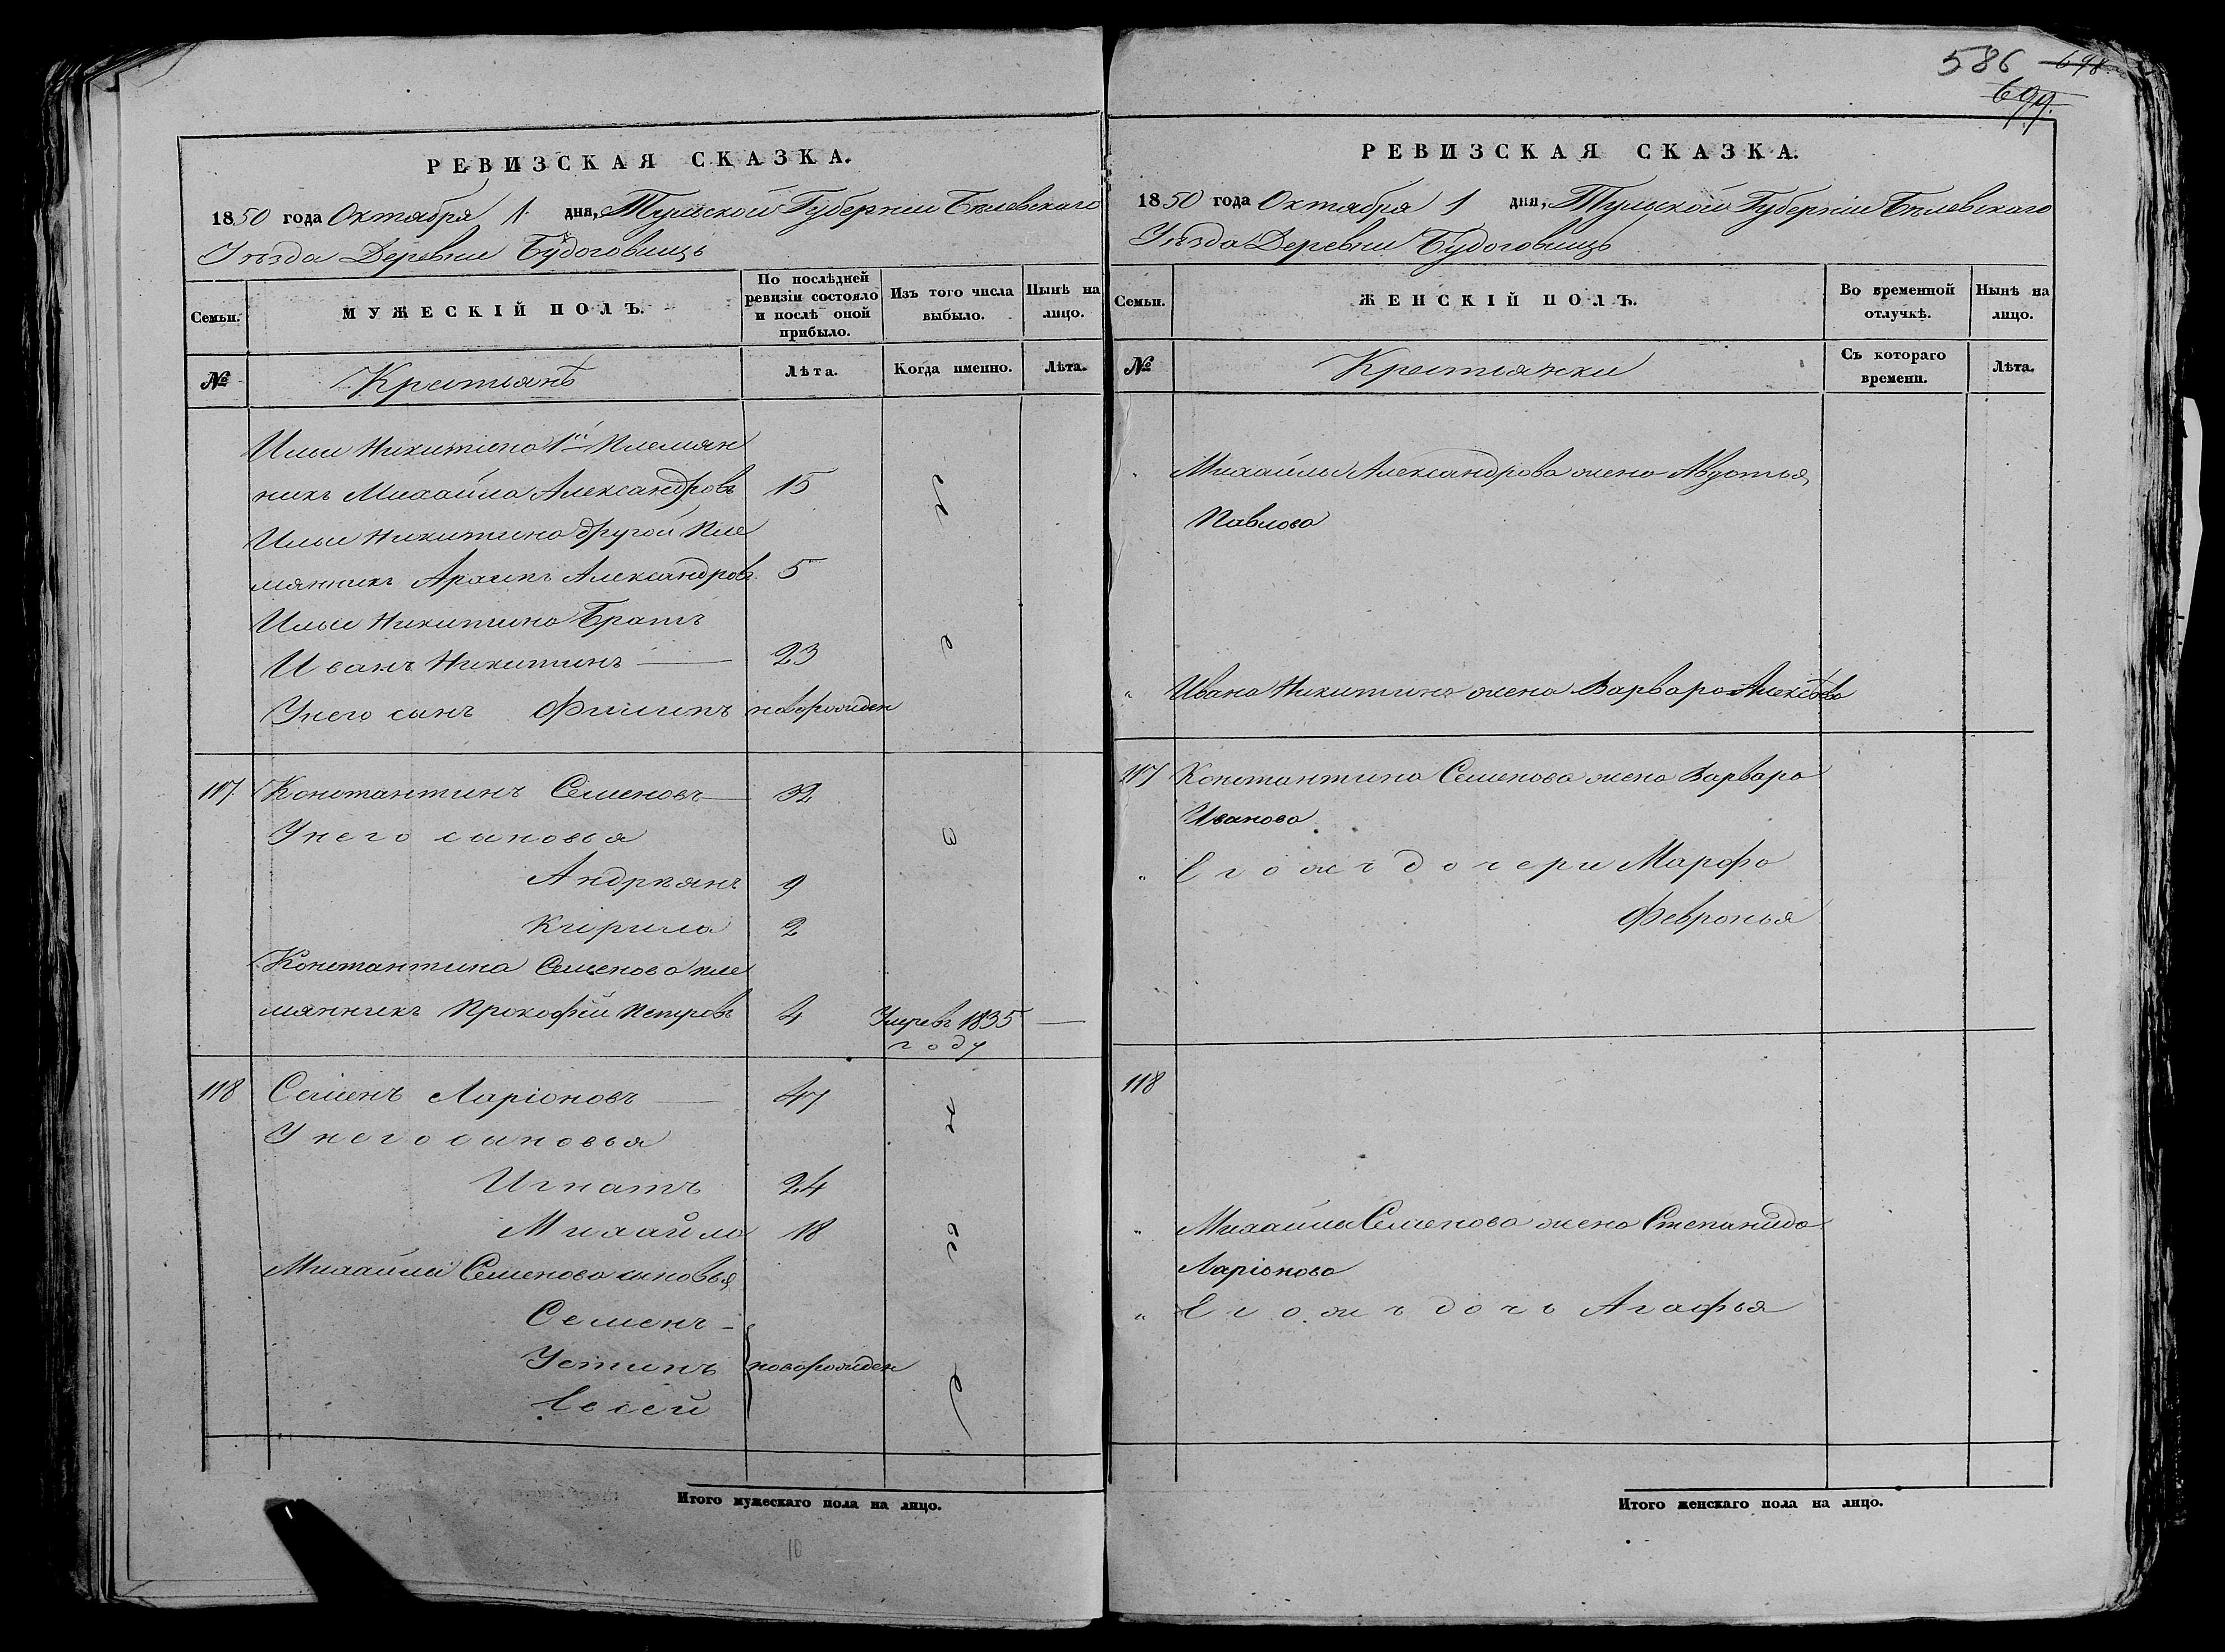 586 698
699.
РЕВИЗСКАЯ СКАЗКА.
1850 года Октября 1 дня, Тульской Губерніи Бѣлевскаго
Уѣзда Деревни Будоговищъ
Семьи. МУЖЕСКІЙ ПОЛЪ. По послѣдней ревизіи состояло и послѣ оной прибыло. Изъ того числа выбыло. Нынѣ на лицо.
№ Крестьянъ Лѣта. Когда именно. Лѣта.
Ильи Никитина 1й Племян
никъ Михайла Александровъ 15
Ильи Никитина другой Пле
мянникъ Архипъ Александровъ 5
Ильи Никитина Братъ
Иванъ Никитинъ 23
У него сынъ Филипъ новорожден
117. Константинъ Семеновъ 32
У него сыновья
Андреянъ 9
Кирила 2
Константина Семенова пле
мянникъ Прокофій Петровъ 4 Умре въ 1835
году
118 Семенъ Ларіоновъ 47
У него сыновья
Игнатъ 24
Михайла 18
Михайлы Семенова сыновья
Семенъ
Устинъ новорожден
Евсей
Итого мужескаго пола на лицо.
10
РЕВИЗСКАЯ СКАЗКА.
1850 года Октября 1 дня, Тульской Губерніи Бѣлевскаго
Уѣзда Деревни Будоговищъ
Семьи. ЖЕНСКІЙ ПОЛЪ. Во временной отлучкѣ. Нынѣ на лицо.
№ Крестьянки Съ котораго времени. Лѣта.
Михайлы Александрова жена Авдотья
Павлова
Ивана Никитина жена Варвара
117 Константина Семенова жена Варвара
Иванова
Его жъ дочери Марфа
Февронья
118
Михайлы Семенова жена Степанида
Ларіонова
Его жъ дочь Агафья
Итого женскаго пола на лицо.